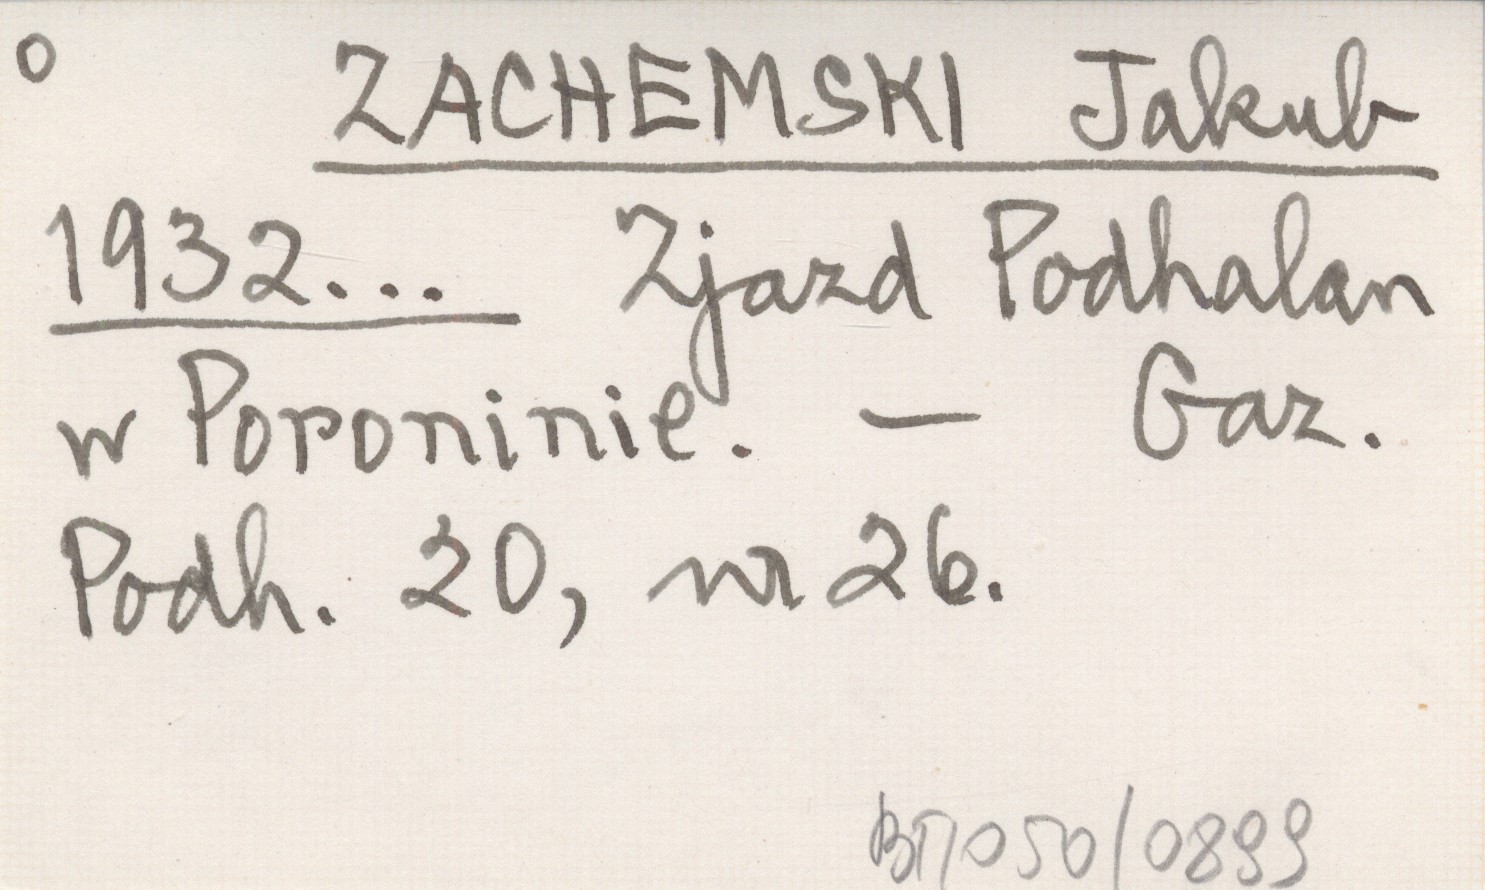 o ZACHEMSKI Jakub
1932... Zjazd Podhalan
w Poroninie. — Gaz.
Podh. 20, nr 26.